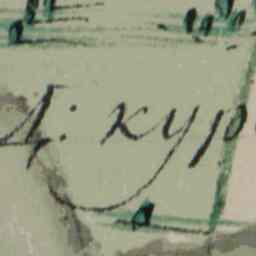 Д: кур